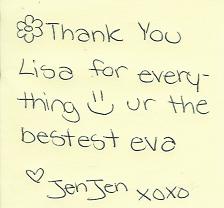 Thank You
Lisa for every-
thing ur the
bestest eva
JenJen xoxo